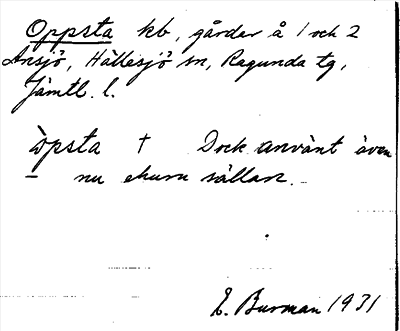 Oppsta kb, gårdar å 1 och 2
Ansjö, Hällesjö sn, Ragunda tg,
Jämtl. l.
òpsta † Dock använt även
nu ehuru sällan.
E. Burman 1931